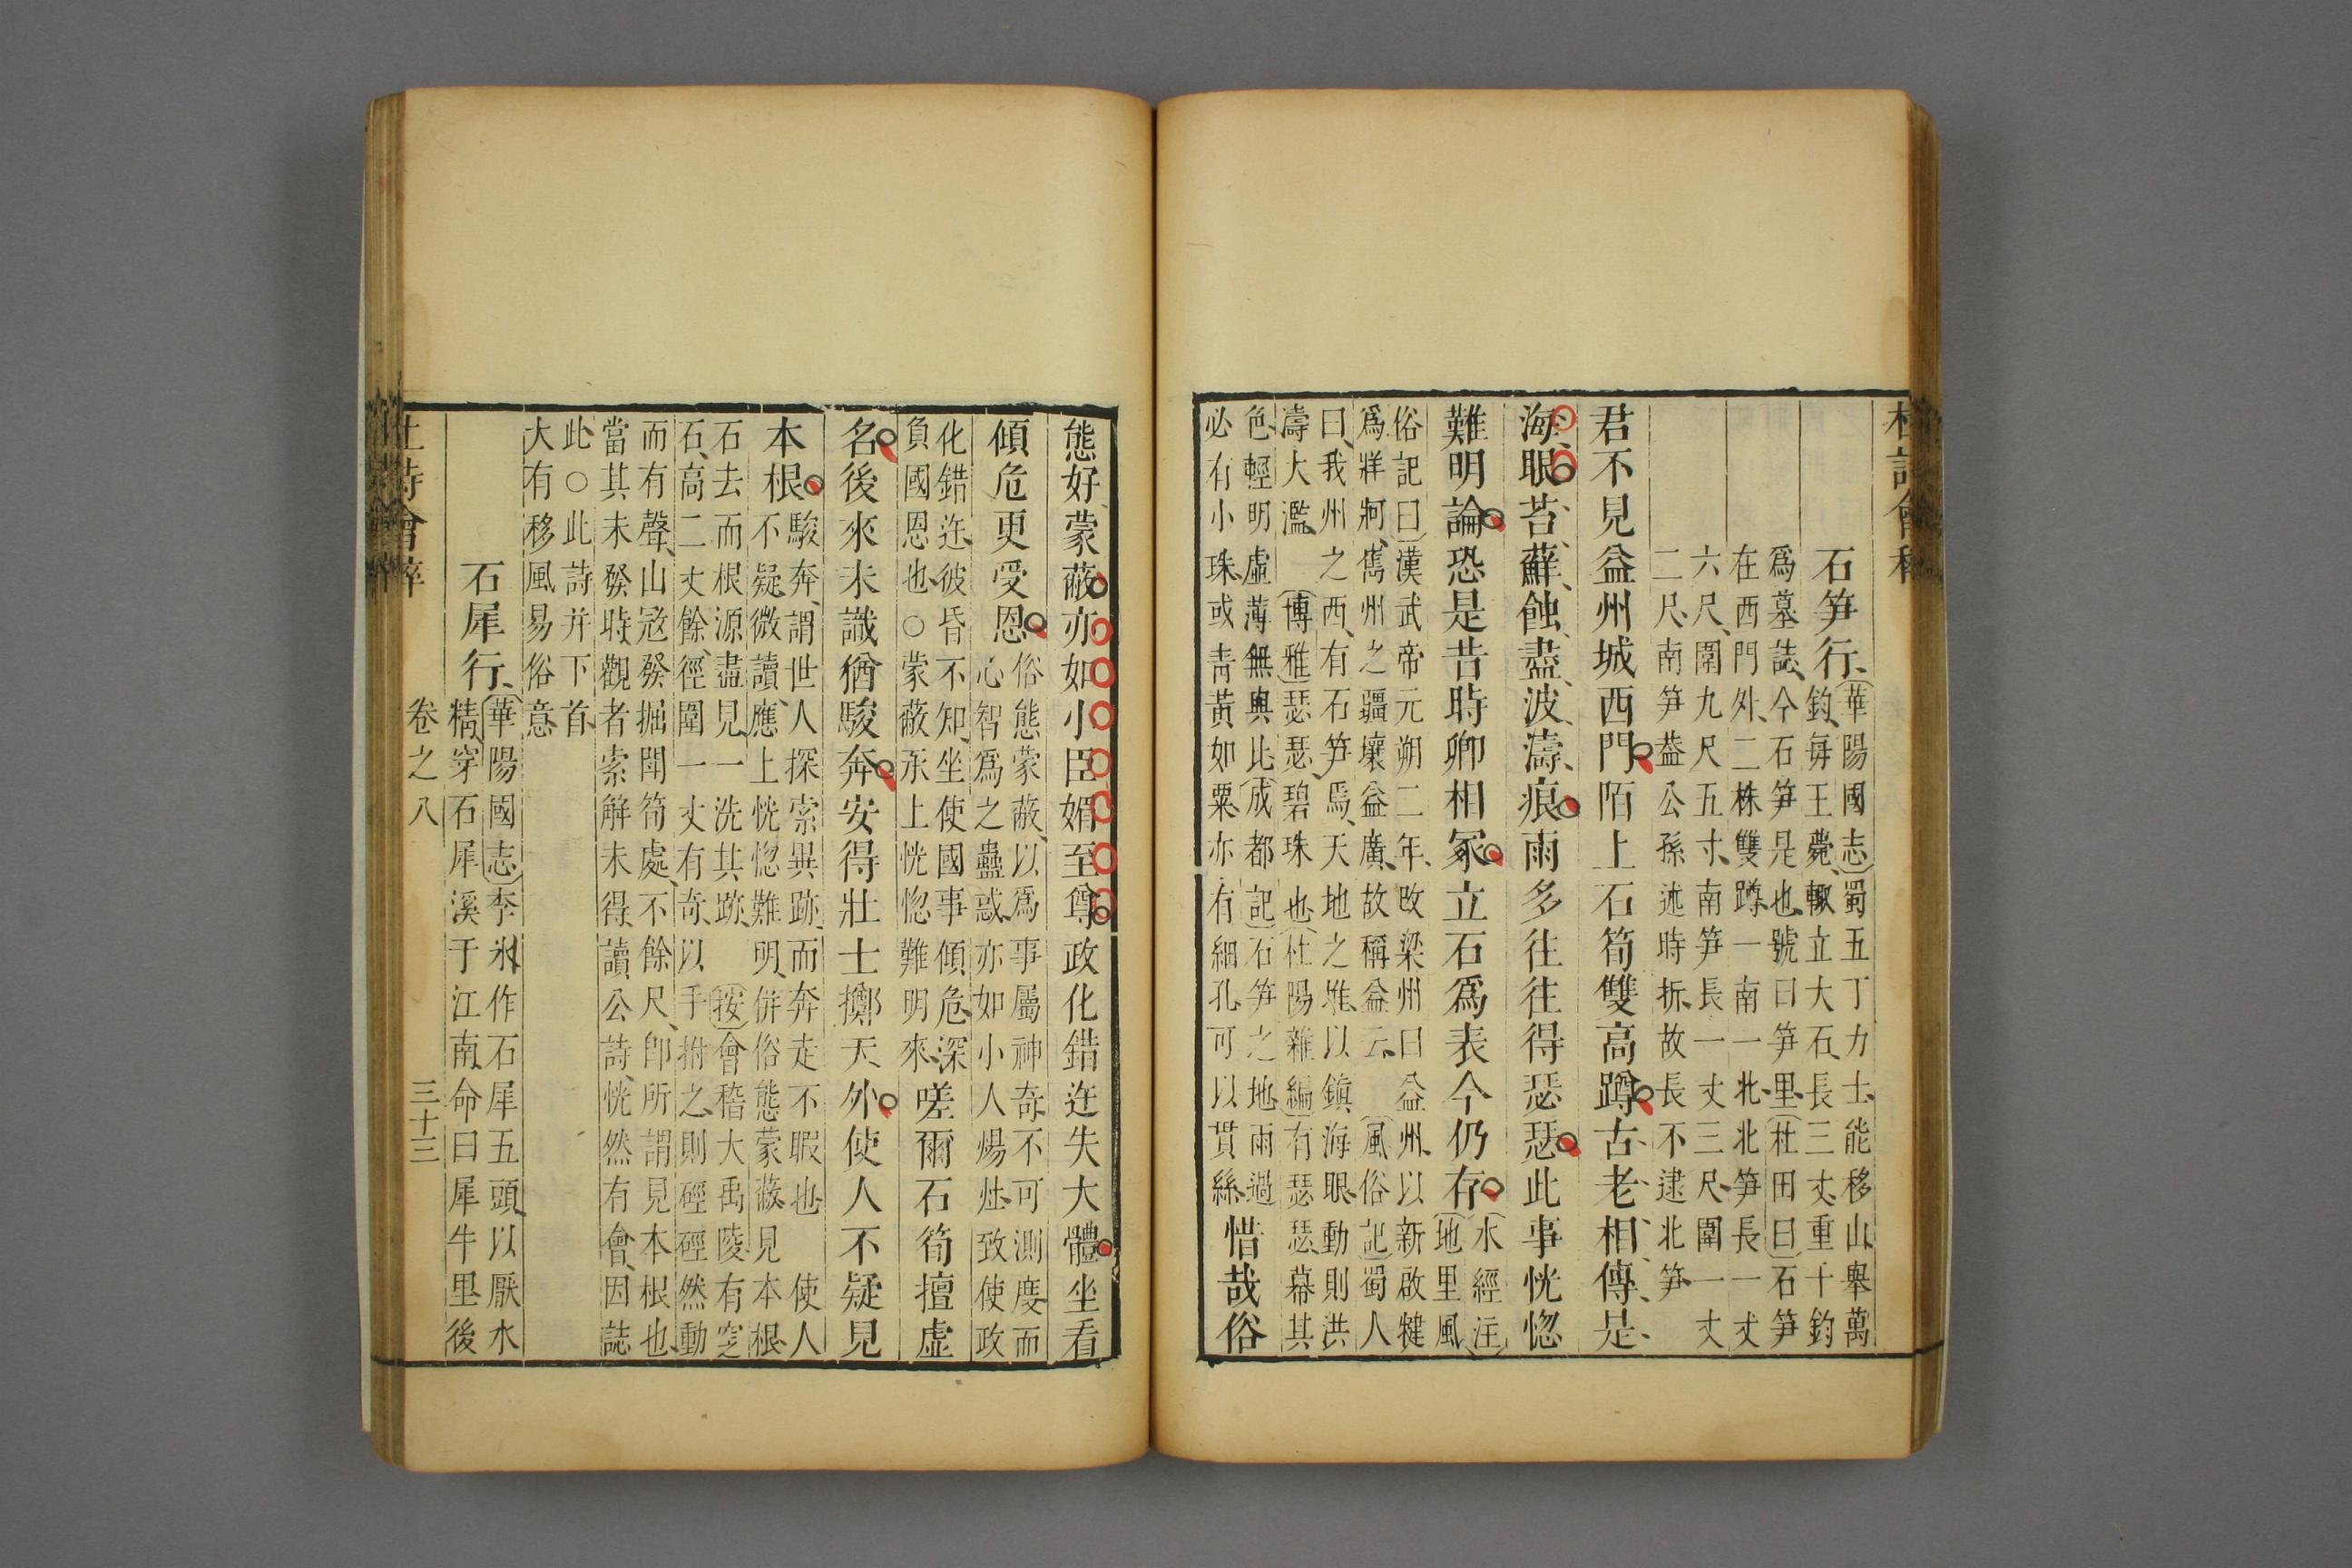 石笋行
華陽國志蜀五丁力士能移山舉萬
鈞每王薨輙立大石長三丈重千鈞
爲墓誌今石笋是也號曰笋里杜田曰石笋
在西門外二株雙蹲一南一北北笋長一丈
六尺圍九尺五寸南笋長一丈三尺圍一丈
二尺南笋葢公孫述時折故長不逮北笋
君不見益州城西門陌上石筍雙高蹲古老相傳是
海眼苔蘚蝕盡波濤痕雨多往往得瑟瑟此事恍惚
難明論恐是昔時卿相冢立石爲表今仍存
水經注
地里風
俗記曰漢武帝元朔二年改梁州曰益州以新啟犍
爲牂牁雟州之疆壤益廣故稱益云風俗記蜀人
曰我州之西有石笋焉天地之堆以鎮海眼動則洪
濤大濫博雅瑟瑟碧珠也杜陽雜編有瑟瑟幕其
色輕明虛薄無與比成都記石笋之地雨過
必有小珠或青黃如粟亦有細孔可以貫絲
惜哉俗
態好蒙蔽亦如小臣媚至尊政化錯迕失大體坐看
傾危更受恩
俗態蒙蔽以爲事屬神奇不可測度而
心智爲之蠱惑亦如小人煬灶致使政
化錯迕彼昏不知坐使國事傾危深
負國恩也○蒙蔽承上恍惚難明來
嗟爾石筍擅虛
名後來未識猶駿奔安得壯士擲天外使人不疑見
本根
駿奔謂世人探索異跡而奔走不暇也使人
不疑微讀應上恍惚難明併俗態蒙蔽見本根
石去而根源盡見一洗其跡按會稽大禹陵有窆
石高二丈餘徑圍一丈有奇以手拊之則硜硜然動
而有聲山寇發掘聞筍處不餘尺卽所謂見本根也
當其未發時觀者索解未得讀公詩恍然有會因誌
此○此詩并下首
大有移風易俗意
石犀行
華陽國志李冰作石犀五頭以厭水
精穿石犀溪于江南命曰犀牛里後
卷之八
三十三